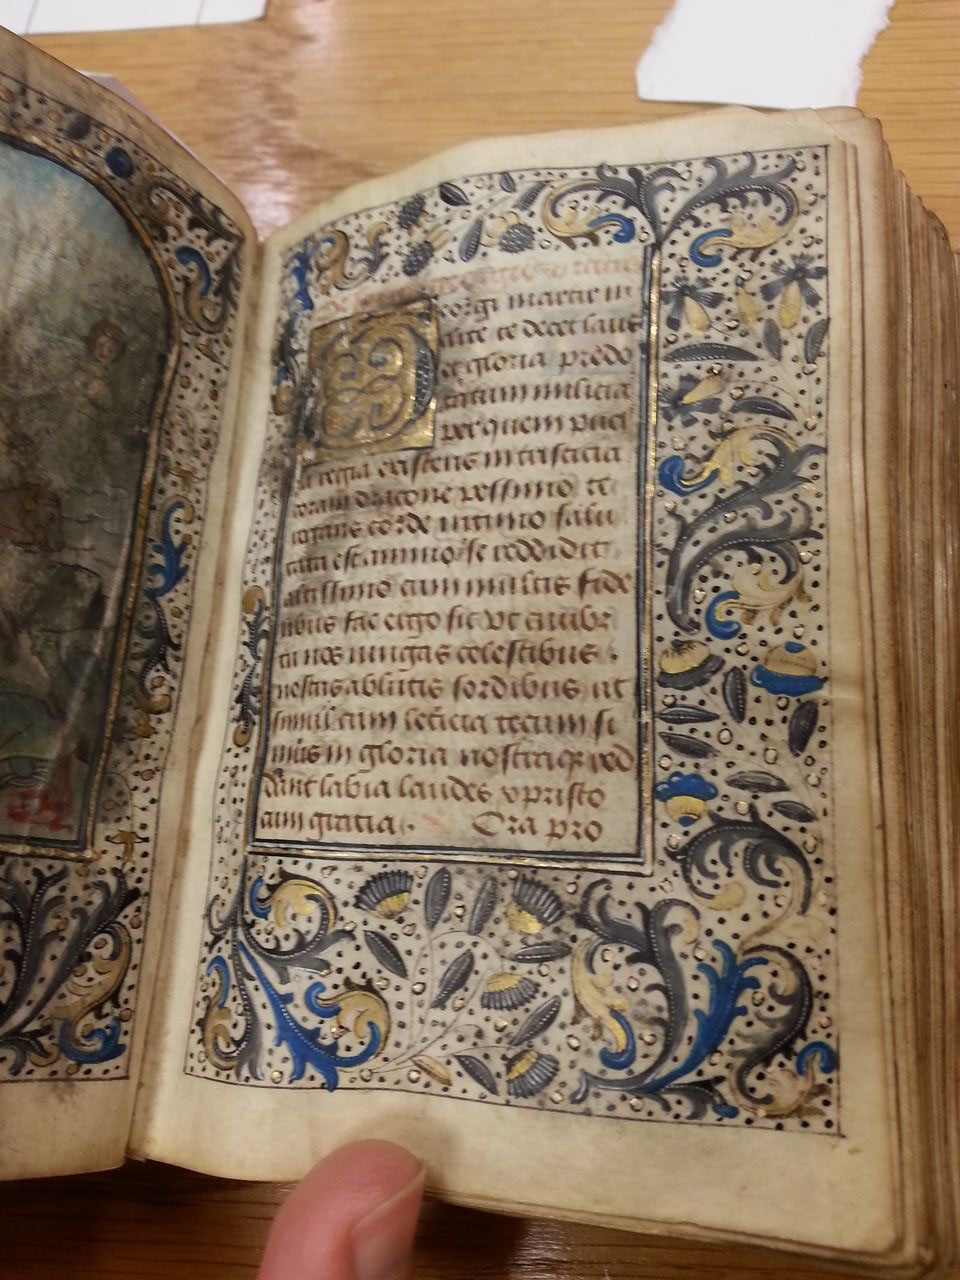 eorgi martir in
lite te decet laus
et gloria predo
tatum milicia
per quem puel
la regia existens in tristicia
coram dracone pessimo te
rogans corde intimo salu
tata est animo se reddidit
altissimo cum multis fide
libus fac ergo sic vt cuiubz
tu nos iungas celestibus .
nostris ablutis sordibus ut
simul cum leticia tecum si
mus in gloria nostraque red
dant labia laudes xpristo
cum gratia . Ora pro